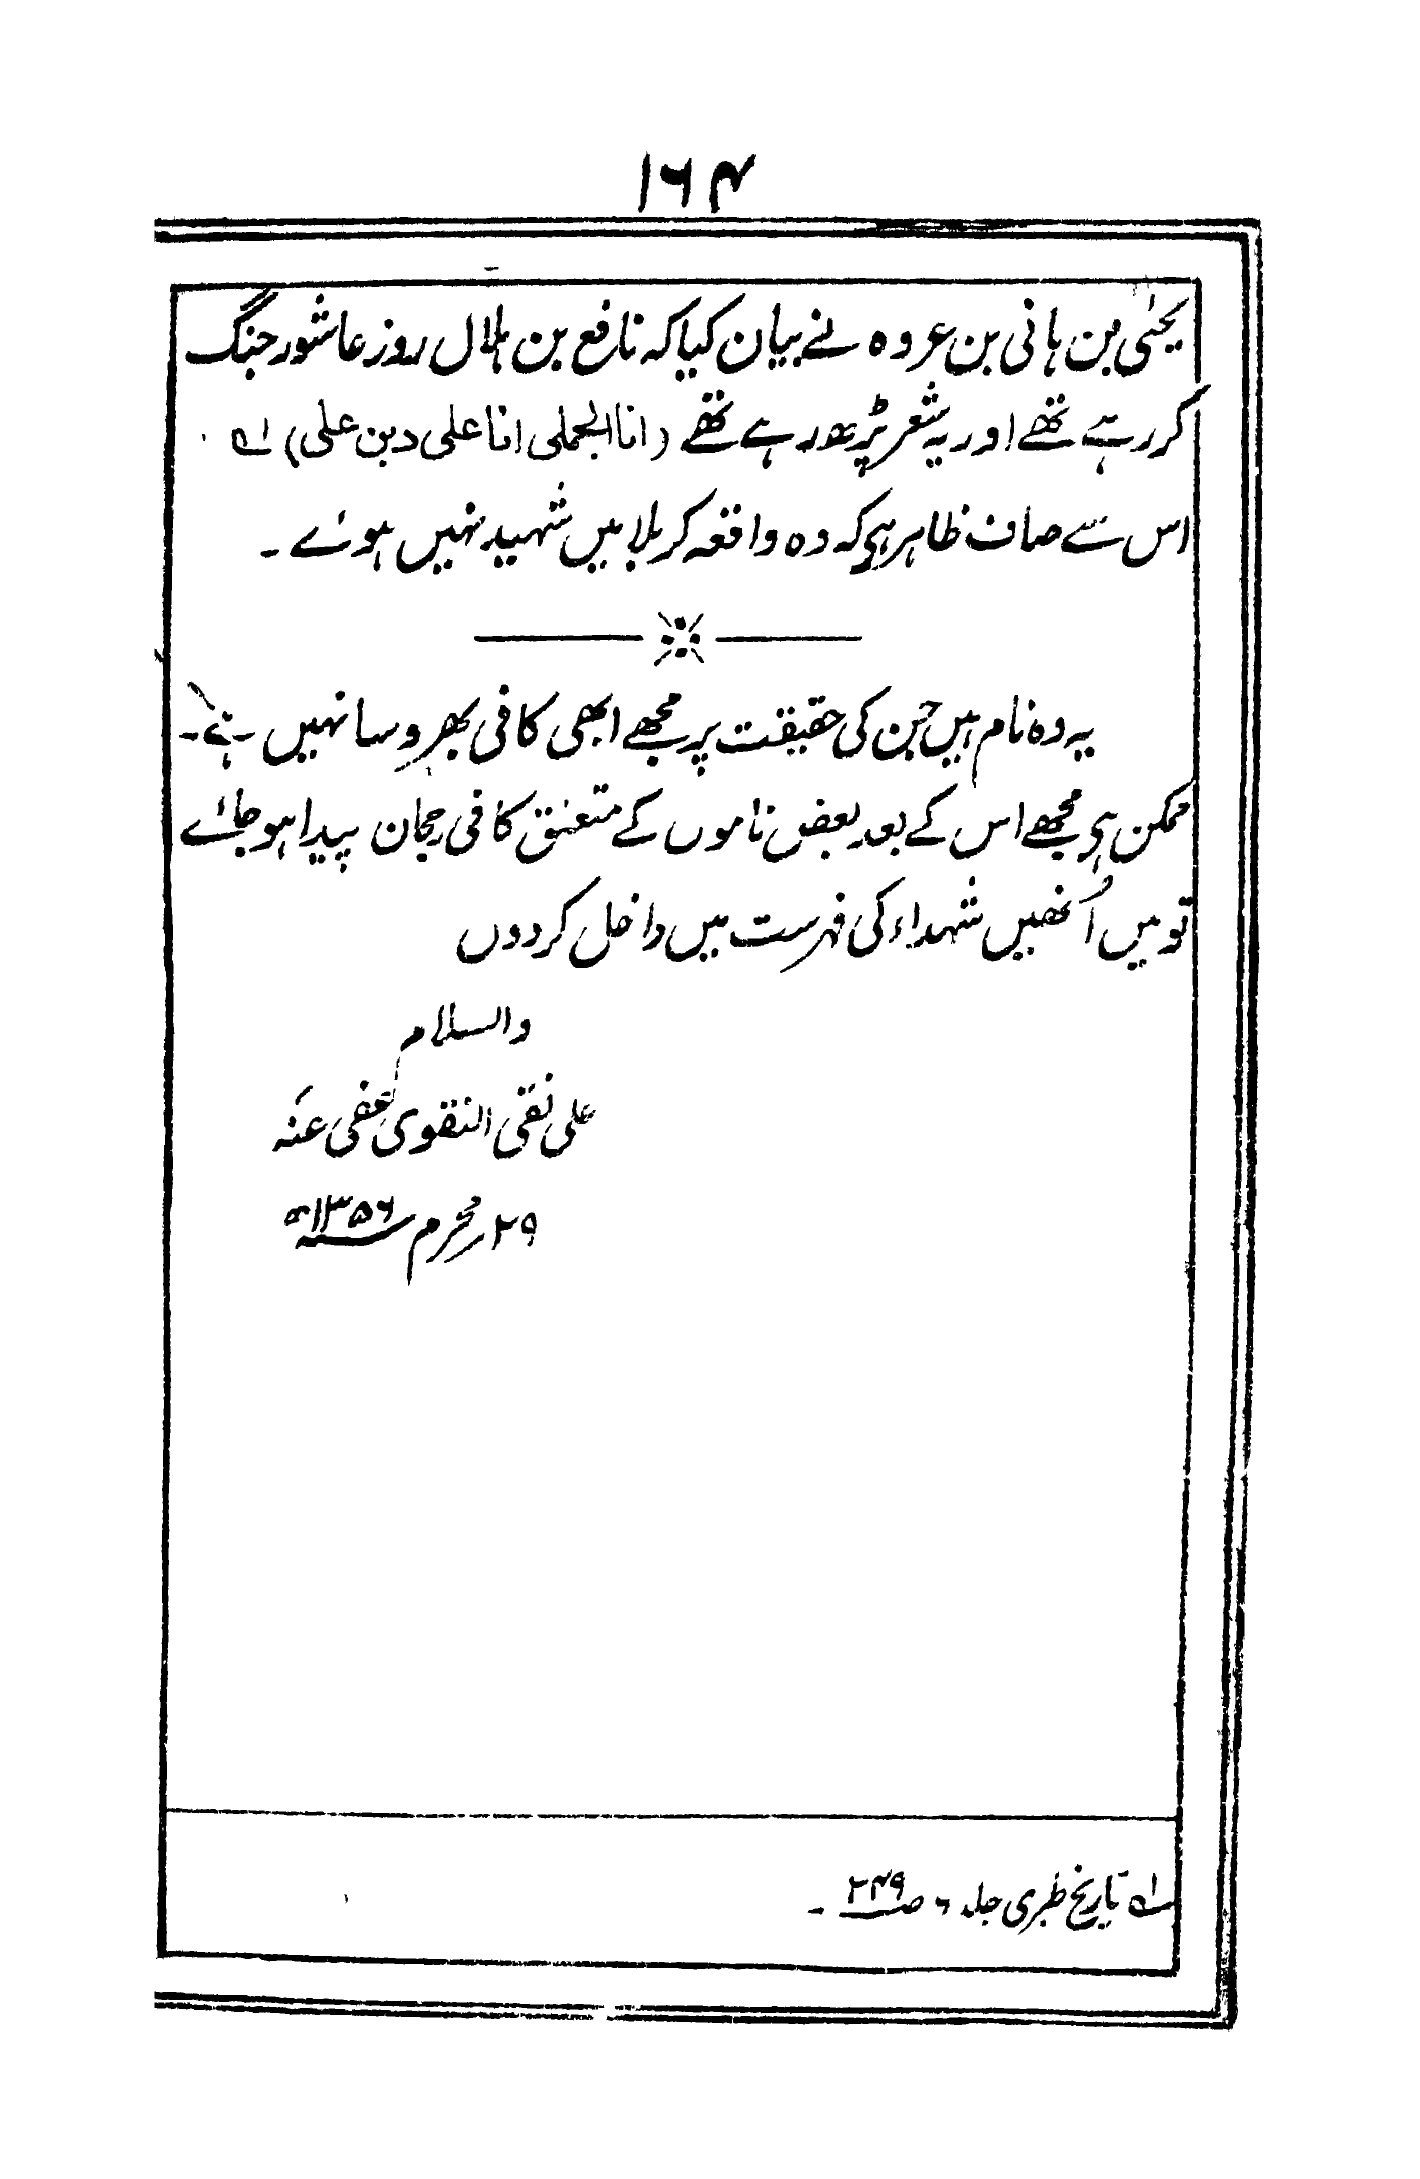 ۱۶۴
یحیٰی بن ہانی بن عروہ نے بیان کیا کہ نافع بن ہلال روز عاشور جنگ
کر رہے تھے اور یہ شعر پڑھ رہے تھے (انا الجملی انا علی دین علی) لہ
اس سے صاف ظاہر ہی کہ وہ واقعہ کربلا میں شہید نہیں ہوئے ۔
یہ وہ نام ہیں جن کی حقیقت پر مجھے ابھی کافی بھروسا نہیں ہے ۔
ممکن ہی مجھے اس کے بعد بعض ناموں کے متعلق کافی رجحان پیدا ہو جائے
تو میں اُنھیں شہداء کی فہرست میں داخل کر دوں
والسلام
علی نقی النقوی عفی عنہ
۲۹ محرم ۱۳۵۶ھ
لہ تاریخ طبری جلد ۶ صـ۲۴۹ ۔